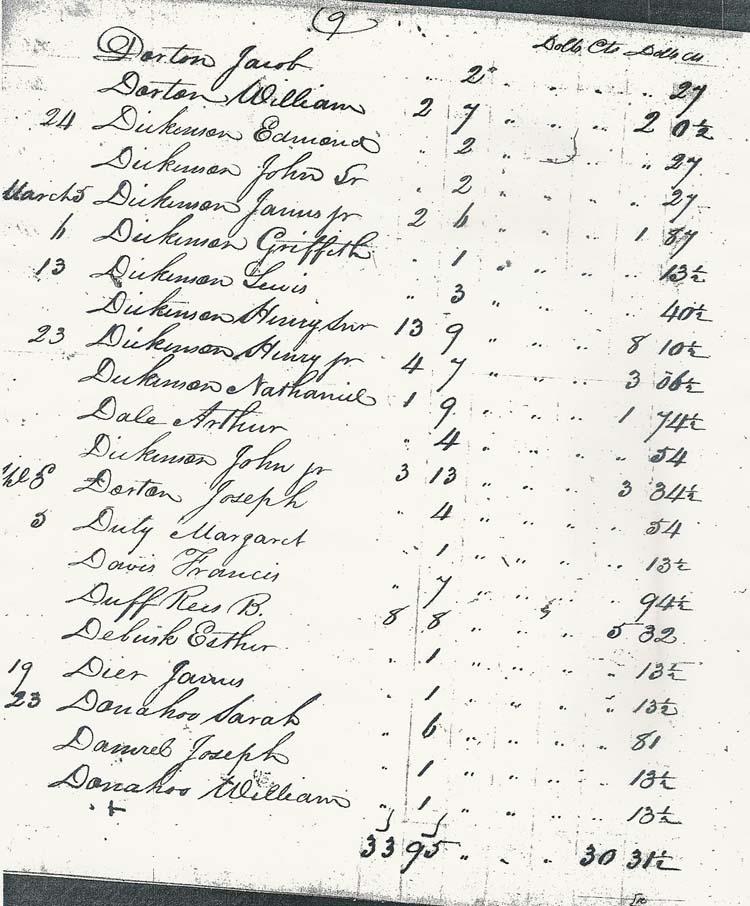 (9
Dolls Cts Dolls cts
Dorton Jacob " 2 " " " " 27
Dorton William 2 7 " " " 2 0½
24 Dickinson Edmond " 2 " " " 27
Dickinson John Sr " 2 " " " 27
March 5 Dickinson James jr 2 6 " " " 1 87
6 Dickinson Griffith " 1 " " " " 13½
13 Dickinson Lewis " 3 " " " " 40½
Dickinson Henry Snr 13 9 " " " 8 10½
23 Dickinson Henry jr 4 7 " " " 3 56½
Dickinson Nathaniel 1 9 " " " 1 74½
Dale Arthur " 4 " " " " 54
Dickinson John jr 3 13 " " " 3 34½
8 Dorton Joseph " 4 " " " 54
5 Duty Margaret " 1 " " " 13½
Davis Francis " 7 " " " 94½
Duff Rees B. 8 8 " " " 5 32
Debusk Esther " 1 " " " " 13½
19 Dier James " 1 " " " " 13½
23 Donahoo Sarah " 6 " " " " 81
Damrel Joseph " 1 " " " " 13½
Donahoo William " 1 " " " " 13½
33 95 " " " 30 31½